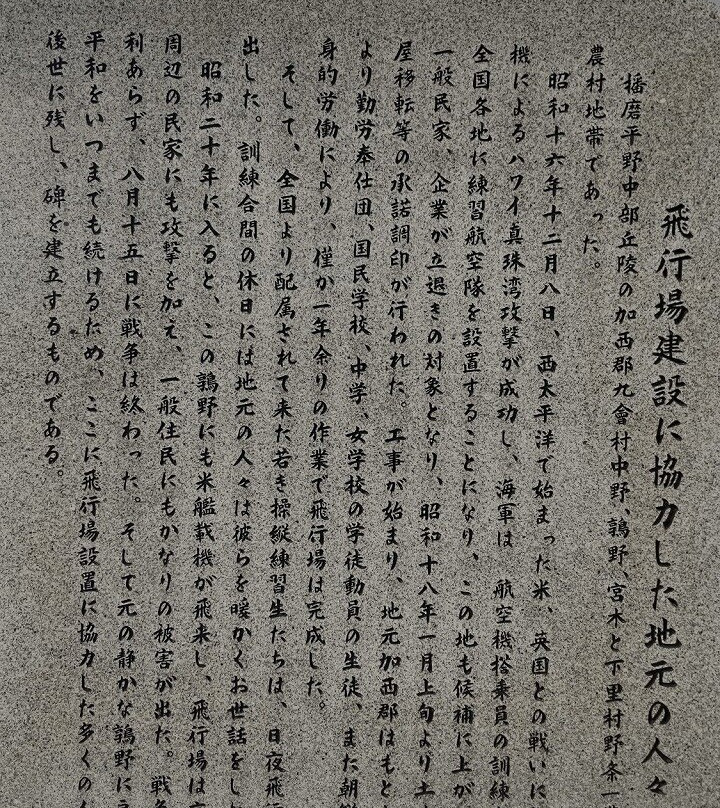 飛行場建設に協力した地元の人々
播磨平野中部丘陵の加西郡九會村中野、鶉野、宮木と下里村野条一
農村地帯であった。
昭和十六年十二月八日、西太平洋で始まった米、英国との戦いに
機によるハワイ真珠湾攻撃が成功し、海軍は航空機搭乗員の訓練
全国各地に練習航空隊を設置することになり、この地も候補に上が
一般民家、企業が立退きの対象となり、昭和十八年一月上旬より土
屋移転等の承諾調印が行われた。工事が始まり、地元加西郡はもと
より勤労奉仕団、国民学校、中学、女学校の学徒動員の生徒、また朝
身的労働により、僅か一年余りの作業で飛行場は完成した。
そして、全国より配属されて来た若き操縦練習生たちは、日夜飛行
出した。訓練合間の休日には地元の人々は彼らを暖かくお世話をし
昭和二十年に入ると、この鶉野にも米艦載機が飛来し、飛行場は
周辺の民家にも攻撃を加え、一般住民にもかなりの被害が出た。戦
利あらず、八月十五日に戦争は終わった。そして元の静かな鶉野に
平和をいつまでも続けるため、ここに飛行場設置に協力した多くの
後世に残し、碑を建立するものである。